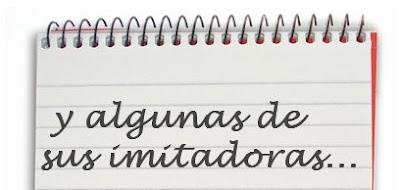 y algunas de
sus imitadoras...